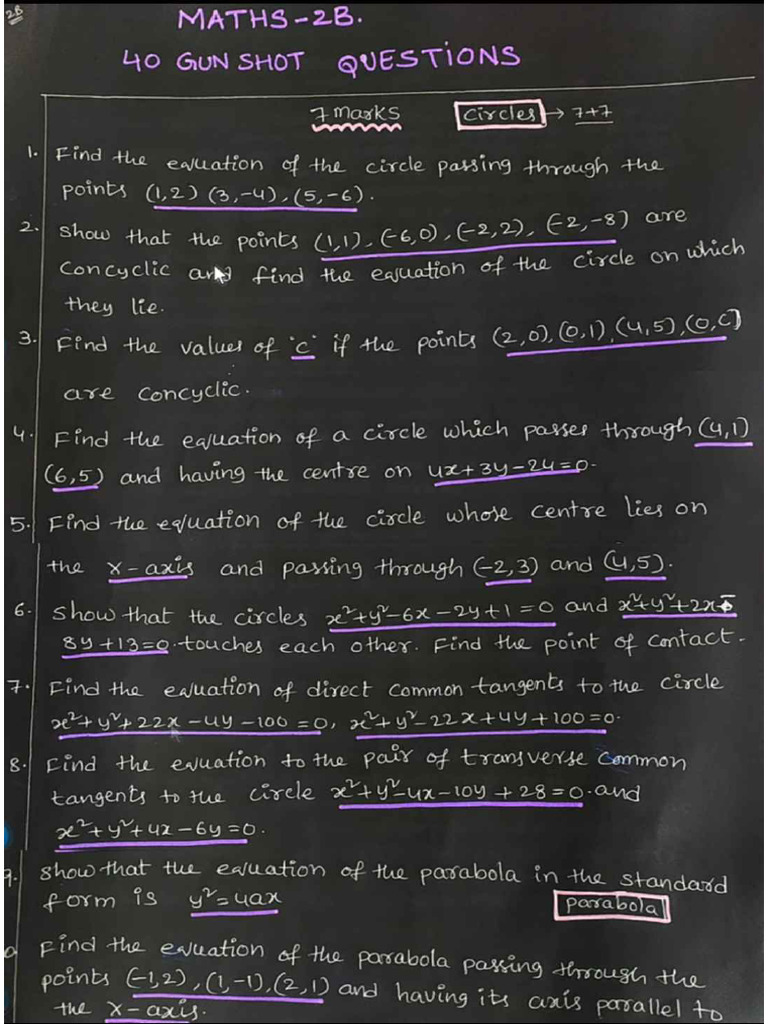 2B
MATHS-2B.
40 GUN SHOT QUESTIONS
7 Marks Circles → 7+7
1. Find the equation of the circle passing through the
points (1,2) (3,-4), (5,-6).
2. Show that the points (1,1), (-6,0), (-2,2), (-2,-8) are
Concyclic and find the equation of the circle on which
they lie.
3. Find the values of 'c' if the points (2,0), (0,1), (4,5), (0,C)
are concyclic.
4. Find the equation of a circle which passes through (4,1)
(6,5) and having the centre on 4x+3y-24=0.
5. Find the equation of the circle whose centre lies on
the x-axis and passing through (-2,3) and (4,5).
6. Show that the circles x²+y²-6x-2y+1=0 and x²+y²+2x-
8y+13=0. touches each other. Find the point of contact.
7. Find the equation of direct common tangents to the circle
x²+y²+22x-4y-100=0, x²+y²-22x+4y+100=0.
8. Find the equation to the pair of transverse common
tangents to the circle x²+y²-4x-10y+28=0. and
x²+y²+4x-6y=0.
9. Show that the equation of the parabola in the standard
form is y²=4ax parabola
0 Find the equation of the parabola passing through the
points (-1,2), (1,-1), (2,1) and having its axis parallel to
the x-axis.